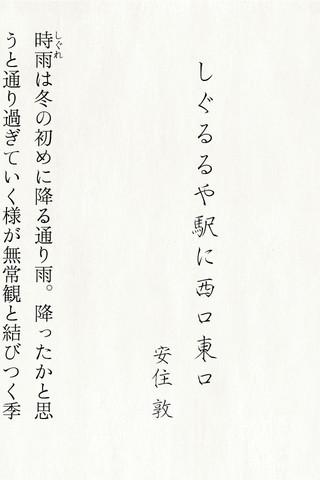 しぐるるや駅に西口東口
安住 敦
時雨は冬の初めに降る通り雨。降ったかと思
しぐれ
うと通り過ぎていく様が無常観と結びつく季